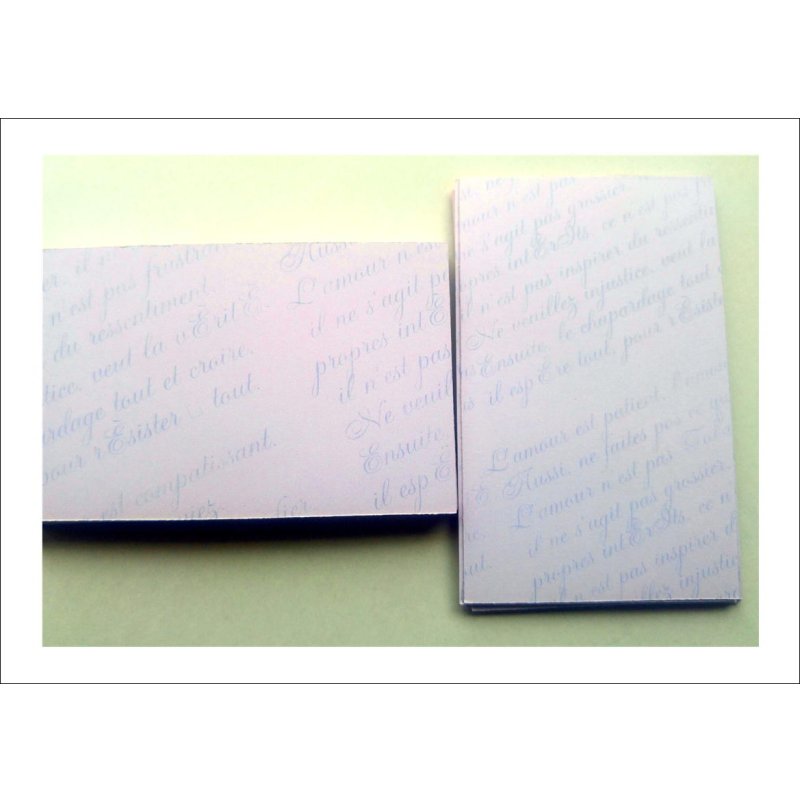 er, il n
n'est pas frustra
du ressentiment.
tice, veut la vÈritÈ.
ardage tout et croire,
pour rÈsister tout.
est compatissant.
Aussi,
L'amour n'es
il ne s'agit p
propres intÈ
il n'est pas
Ne veuil
Ensuite,
il esp È
amour n'est pas
ne s'agit pas grossier.
propres intÈrÍts, ce n'est pas
il n'est pas inspirer du ressenti
Ne veuillez injustice, veut la
Ensuite, le chapardage tout
il esp Ère tout, pour rÈsister
L'amour est patient, l'amour
Aussi, ne faites pas ce
L'amour n'est pas
il ne s'agit pas grossier.
propres intÈrÍts, ce n
il n'est pas inspirer d
injustic